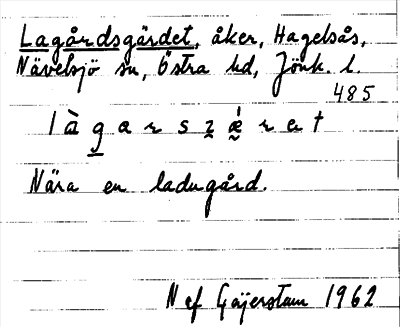 Lagårdsgärdet, åker, Hagelsås,
Nävelsjö sn, Östra hd, Jönk. l.
485
làgarsʐǽrat
Nära en ladugård.
N af Geijerstam 1962